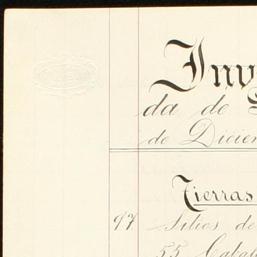 Inv
da de
de Dicien
Tierras
97 Sitios de
55 Cabal